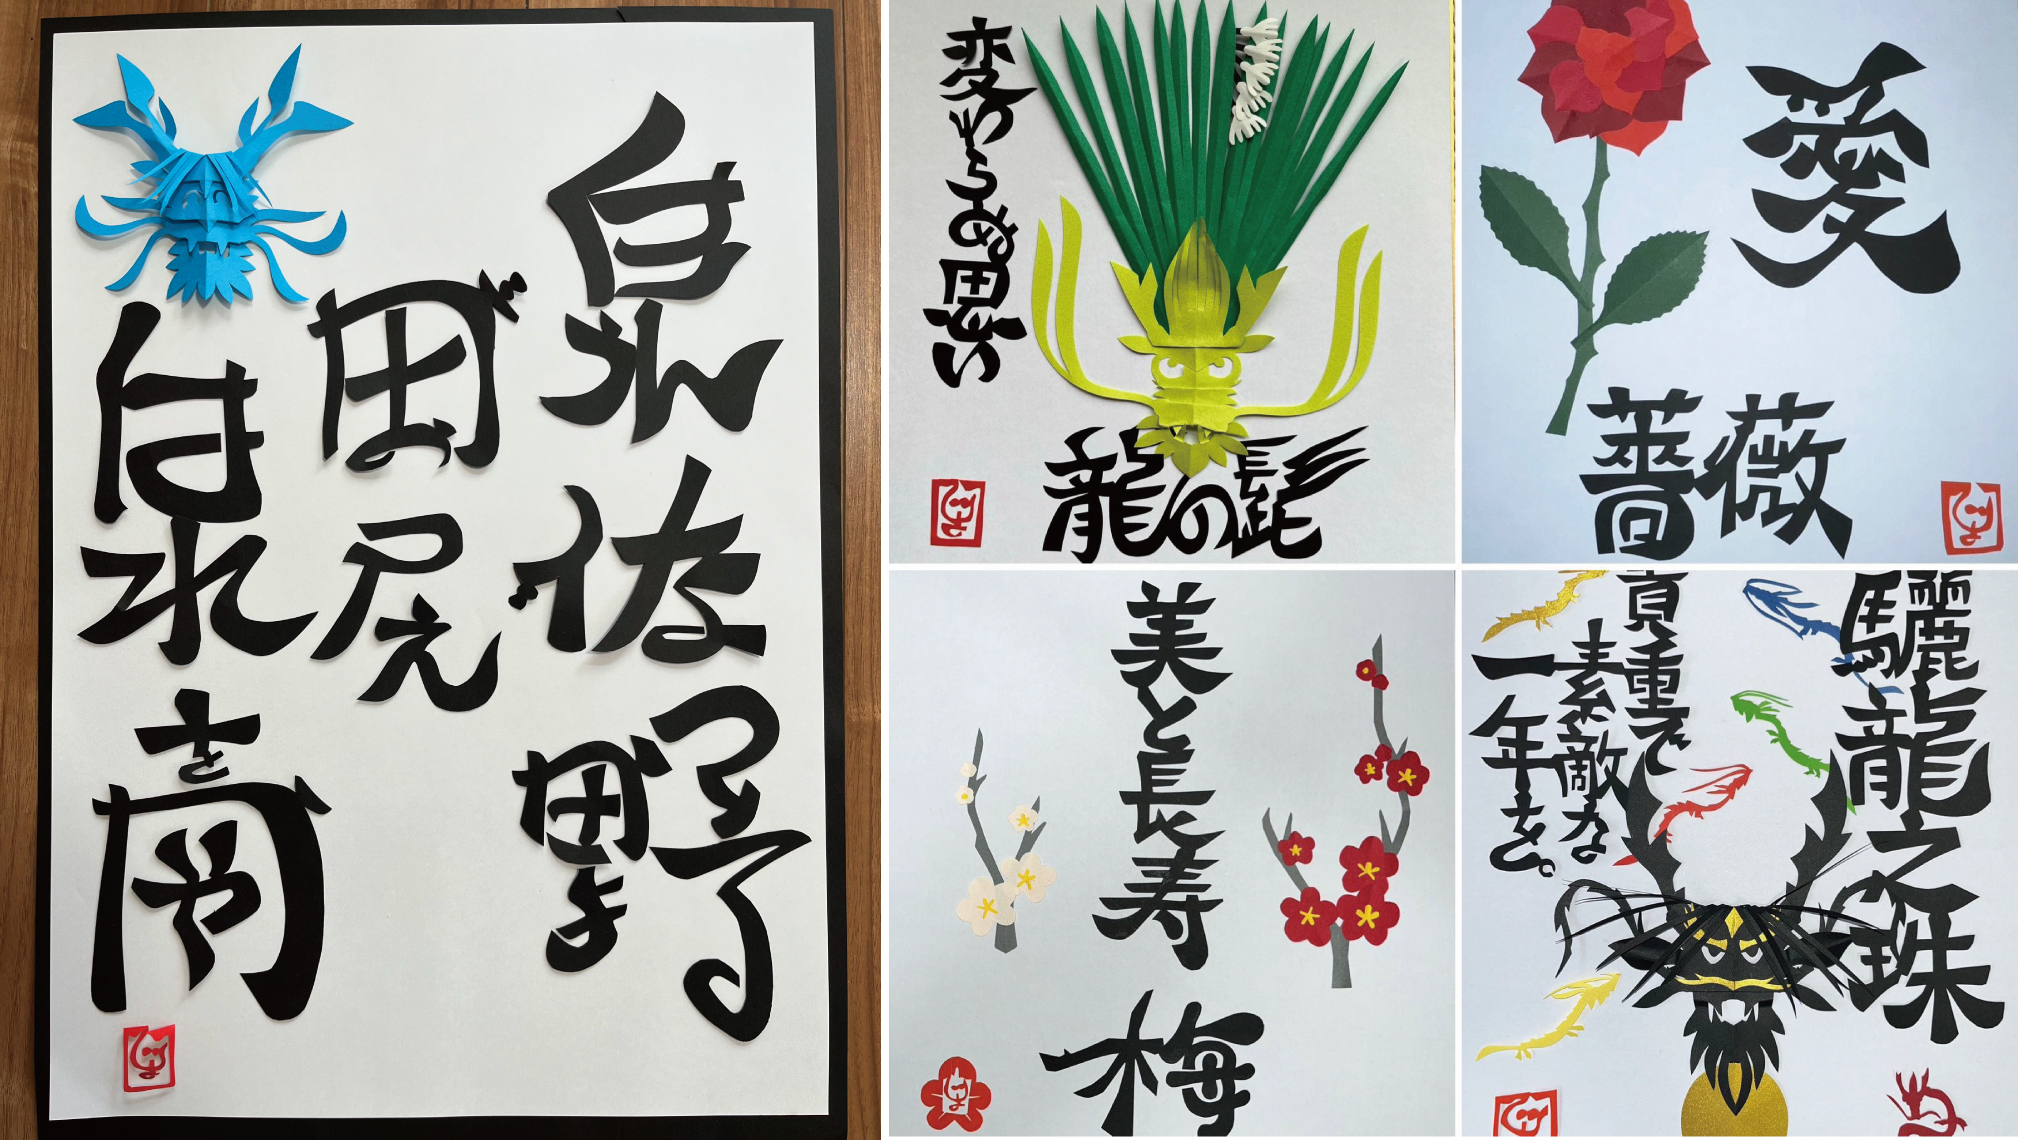 泉佐野
田尻
泉南
変わらぬ思い
龍の髭
愛
薔薇
美と長寿
梅
驪龍之珠
貴重で
素敵な
一年を。